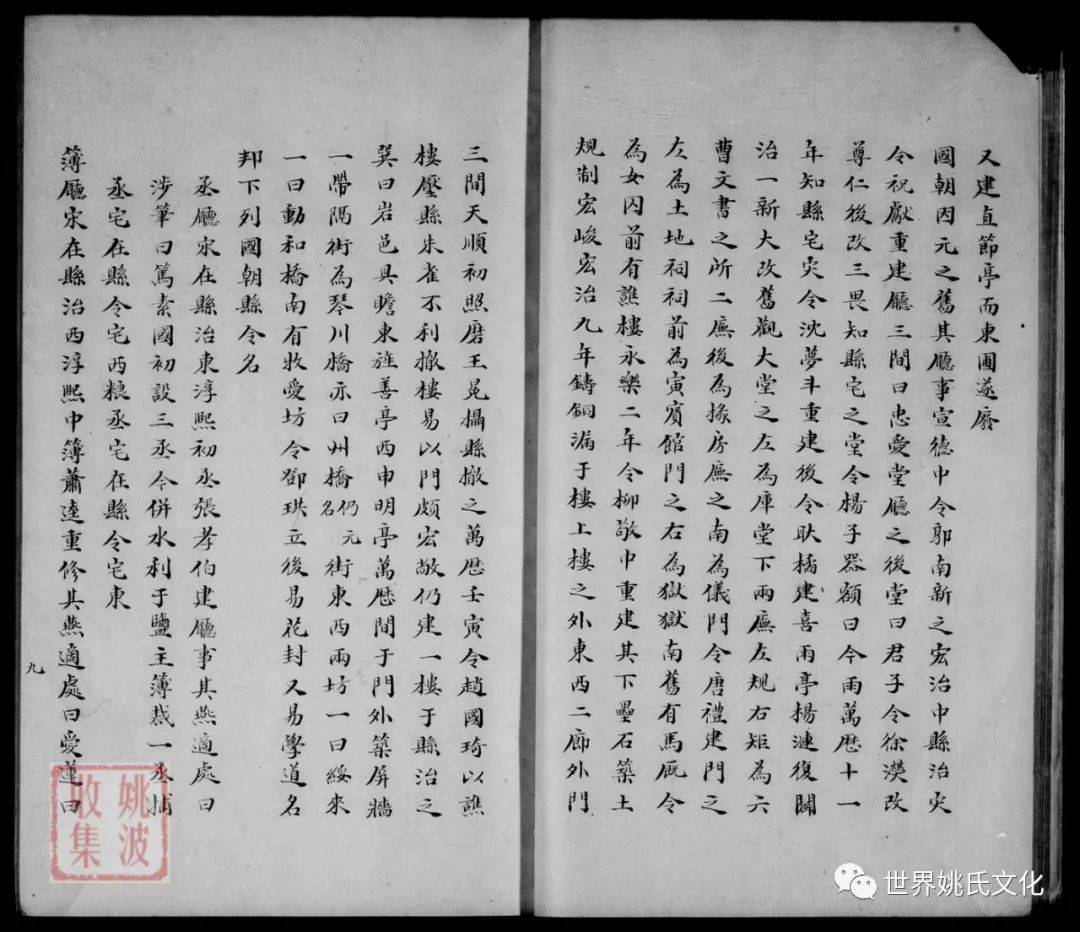 又建直節亭而東圃遂廢
國朝因元之舊其廳事宣德中令郭南新之宏治中縣治災
令祝獻重建廳三間曰忠愛堂廳之後堂曰君子令徐濙改
尊仁後改三畏知縣宅之堂令楊子器額曰今雨萬歷十一
年知縣宅災令沈夢斗重建後令耿橘建喜雨亭楊漣復闢
治一新大改舊觀大堂之左為庫堂下兩廡左規右矩為六
曹文書之所二廡後為掾房廡之南為儀門令唐禮建門之
左為土地祠祠前為寅賓館門之右為獄獄南舊有馬厩令
為女囚前有譙樓永樂二年令柳敬中重建其下壘石築土
規制宏峻宏治九年鑄銅漏于樓上樓之外東西二廊外門
三間天順初照磨王冕攝縣撤之萬歷壬寅令趙國琦以譙
樓壓縣朱雀不利撤樓易以門頗宏敞仍建一樓于縣治之
巽曰岩邑具瞻東旌善亭西申明亭萬歷間于門外築屏牆
一帶隔街為琴川橋亦曰州橋仍元名街東西兩坊一曰綏來
一曰動和橋南有牧愛坊令鄧珙立後易花封又易學道名
邦下列國朝縣令名
丞廳宋在縣治東淳熙初丞張孝伯建廳事其燕適處曰
涉筆曰篤素國初設三丞今併水利于鹽主簿裁一丞捕
丞宅在縣令宅西糧丞宅在縣令宅東
簿廳宋在縣治西淳熙中簿蕭逵重修其燕適處曰愛蓮曰
九
姚波
收集
世界姚氏文化